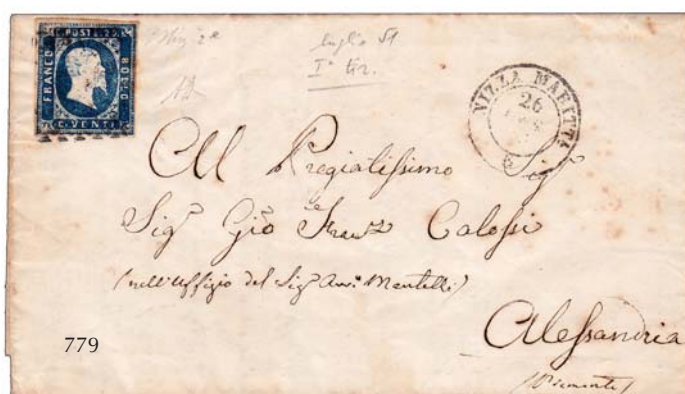 POSTE
FRANCO
BOLLO
C. VENTI
luglio 51
Iª tir.
NIZZA MARITTA
26
Al Pregiatissimo Sigʳ
Sigʳ Gio Franᶜᵒ Calossi
(nell'Uffizio del Sigʳ Avvᵒ Mantelli)
Alessandria
(Piemonte)
779